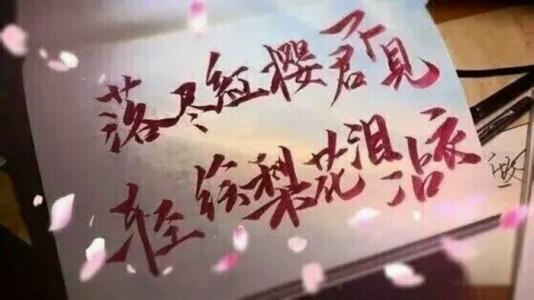 落尽红樱君不见
轻绘梨花泪沾衣